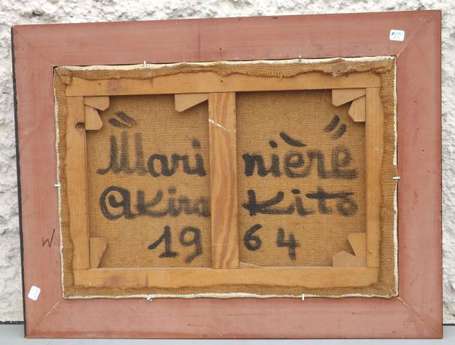 "Marinière"
Akira Kito
1964